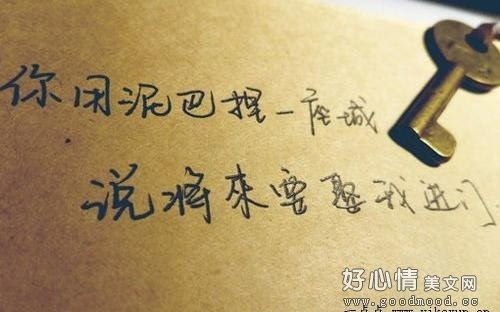 你用泥巴捏一座城
说将来要娶我进门
好心情美文网
www.goodmood.cc